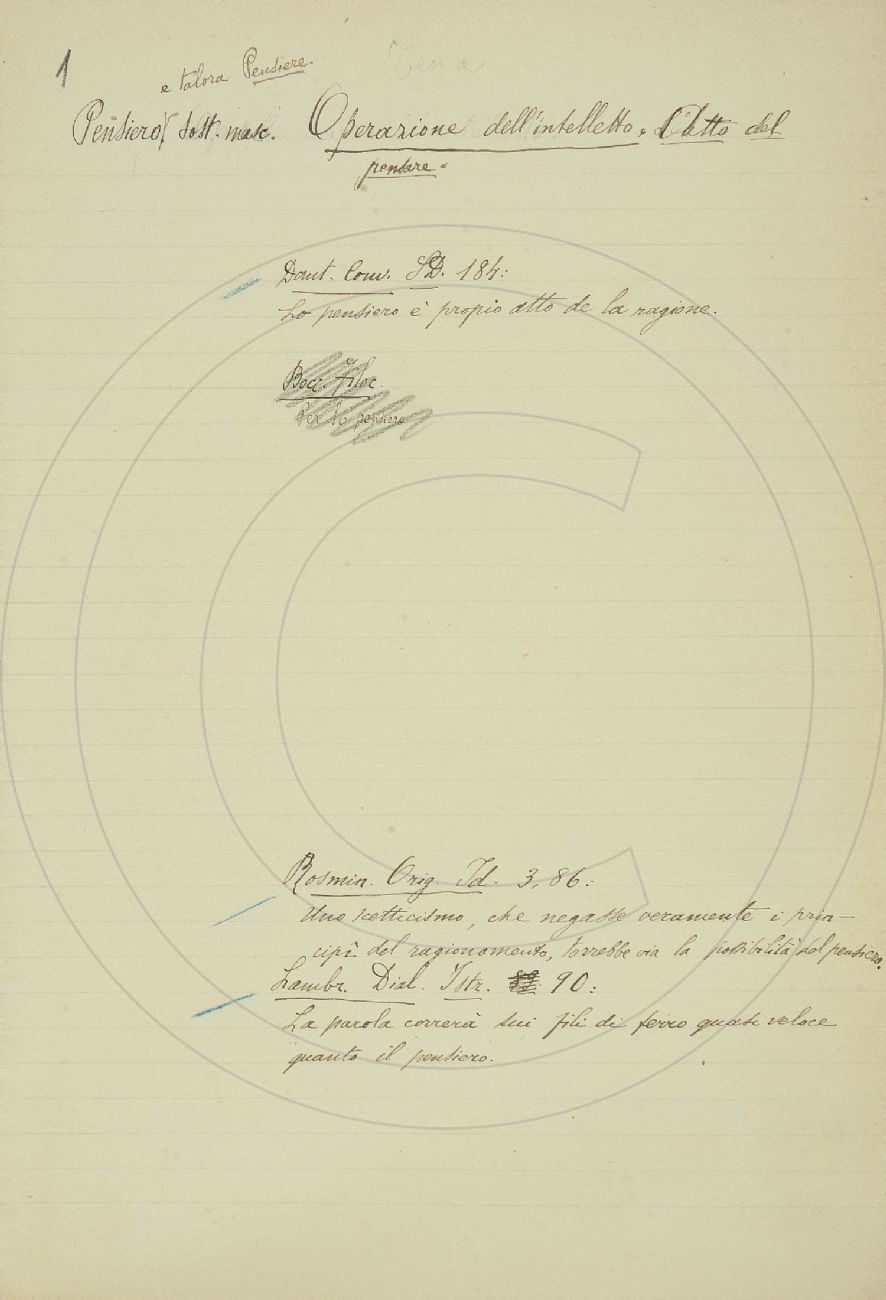 1
e talora Pensiere.
Tema
Pensiero Sost. masc. Operazione dell'intelletto, L'atto del
pensare.
Dant. Conv. SD. 184:
Lo pensiero è propio atto de la ragione.
Bocc. Filoc.
Per lo pensiero
Rosmin. Orig. Id. 3, 86:
Uno scetticismo, che negasse veramente i prin-
cipî del ragionamento, torrebbe via la possibilità del pensiero.
Lambr. Dial. Istr. 90:
La parola correrà sui fili di ferro quasi veloce
quanto il pensiero.